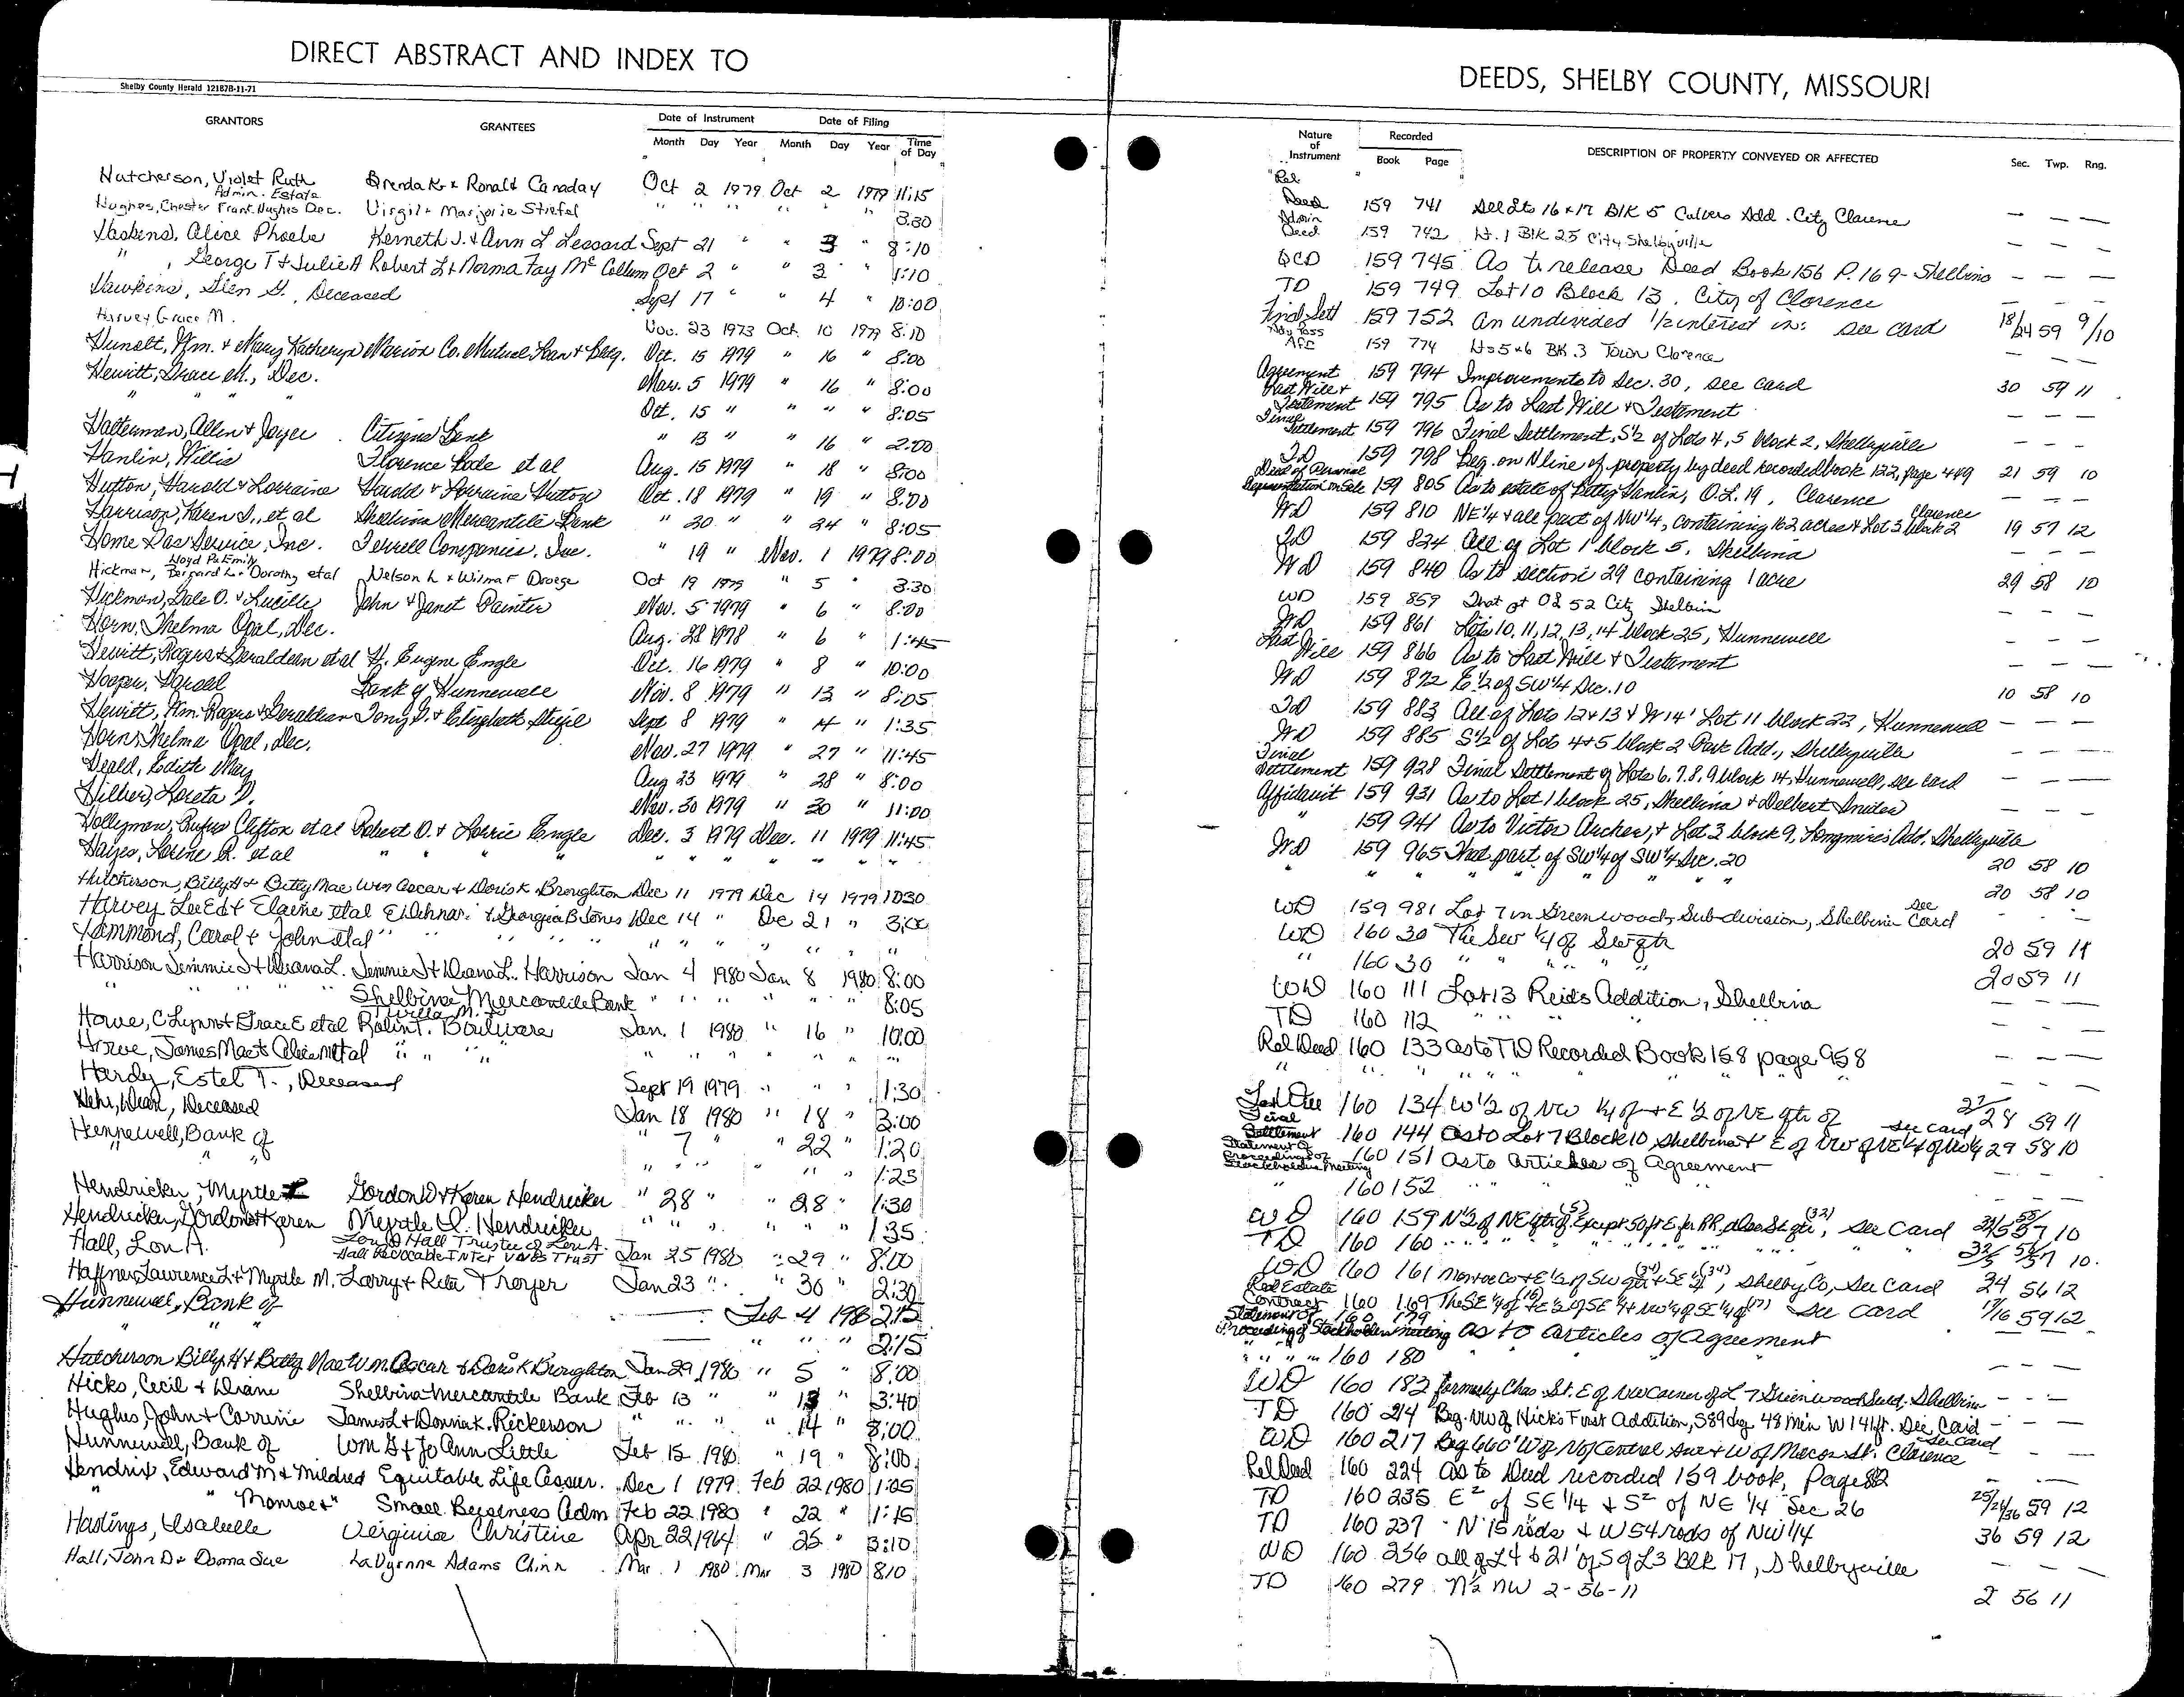 DIRECT ABSTRACT AND INDEX TO
Shelby County Herald 12187B-11-71
GRANTORS GRANTEES Date of Instrument Date of Filing
Month Day Year Month Day Year Time of Day
Hutcherson, Violet Ruth Brenda K. & Ronald Canaday Oct 2 1979 Oct 2 1979 11:15
Admin. Estate
Hughes, Chester Frank Hughes Dec. Virgil & Marjorie Stiefel " " " " " " 3:30
Haskens, Alice Phoebe Kenneth J. & Ann L Lessard Sept 21 " " 3 " 8:10
" , George T & Julie A Robert L & Norma Fay McCollum Oct 2 " " 3 " 1:10
Hawkins, Glen G., Deceased Sept 17 " " 4 " 10:00
Harvey, Grace M. Nov. 23 1973 Oct. 10 1979 8:10
Hunolt, Wm. & Mary Katheryn Marion Co. Mutual Loan & Bldg. Oct. 15 1979 " 16 " 8:00
Hewitt, Grace M., Dec. Mar. 5 1979 " 16 " 8:00
" " " Oct. 15 " " " " 8:05
Halterman, Allen & Joyce Citizens Bank " 13 " " 16 " 2:00
Hanlin, Willis Florence Bode et al Aug. 15 1979 " 18 " 8:00
Hutton, Harold & Lorraine Harold & Lorraine Hutton Oct. 18 1979 " 19 " 8:00
Harrison, Karen S., et al Shelbina Mercantile Bank " 20 " " 24 " 8:05
Home Gas Service, Inc. Ferrell Companies, Inc. " 19 " Nov. 1 1979 8:00
Lloyd P & Emily
Hickman, Bernard L & Dorothy et al Nelson L & Wilma F Droege Oct 19 1979 " 5 " 3:30
Hickman, Dale O. & Lucille John & Janet Painter Nov. 5 1979 " 6 " 8:00
Horn, Thelma Opal, Dec. Aug. 28 1978 " 6 " 1:45
Hewitt, Rogers & Geraldean et al H. Eugene Engle Oct. 16 1979 " 8 " 10:00
Hooper, Bank of Hunnewell Nov. 8 1979 " 13 " 8:05
Hewitt, Wm. Rogers & Geraldean Tony D. & Elizabeth Sept 8 1979 " 14 " 1:35
Horn, Thelma Opal, Dec. Nov. 27 1979 " 27 " 11:45
Heald, Edith May Aug 23 1979 " 28 " 8:00
Hilber, Loreta D. Nov. 30 1979 " 30 " 11:00
Hollyman, Rufus Clifton et al Robert O. & Lorrie Engle Dec. 3 1979 Dec. 11 1979 11:45
Hayes, Lorene A. et al " " " " " " " " "
Hutcherson, Billy H & Betty Mae Wm Oscar & Doris K Broughton Dec 11 1979 Dec 14 1979 10:30
Harvey Lee Ed & Elaine etal & Georgia B Jones Dec 14 " Dec 21 " 3:00
Hammond, Carol & John etal " " " " " " " "
Harrison Jimmie J & Diana L. Jimmie J & Diana L. Harrison Jan 4 1980 Jan 8 1980 8:00
" " " " Shelbina Mercantile Bank " " " " " " 8:05
Willa M. &
Howe, C Lynn & Grace E etal Rolin T. Boulware Jan. 1 1980 " 16 " 10:00
Howe, James Mac & Alice M etal " " " " " " " " "
Hardy, Estel T., Deceased Sept 19 1979 " " " 1:30
Hehr, Dean, Deceased Jan 18 1980 " 18 " 3:00
Hunnewell, Bank of " 7 " " 22 " 1:20
" " " " " " " 1:25
Hendricker, Myrtle I Gordon D & Karen Hendricker " 28 " " 28 " 1:30
Hendricker, Gordon & Karen Myrtle I. Hendricker " " " " " " 1:35
Hall, Lou A. Lou A Hall Trustee of Lou A.
Hall Revocable Inter Vivos Trust Jan 25 1980 " 29 " 8:00
Haffner, Lawrence L & Myrtle M. Larry & Rita Troyer Jan 23 " " 30 " 2:30
Hunnewell, Bank of Feb 4 1980 2:15
" " " " " 2:15
Hutcherson Billy H & Betty Mae Wm Oscar & Doris K Broughton Jan 29 1980 " 5 " 8:00
Hicks, Cecil & Diane Shelbina Mercantile Bank Feb 13 " " 13 " 3:40
Hughes, John & Corrine James L & Donna K. Rickerson " " " " 14 " 8:00
Hunnewell, Bank of Wm G & Jo Ann Little Feb 15 1980 " 19 " 8:00
Hendrix, Edward M & Mildred Equitable Life Assur. Dec 1 1979 Feb 22 1980 1:05
" " Monroe & " Small Business Adm Feb 22 1980 " 22 " 1:15
Hastings, Isabelle Virginia Christine Apr 22 1964 " 25 " 3:10
Hall, John D & Donna Sue LaVyrnne Adams Chinn Mar. 1 1980 Mar 3 1980 8:10
DEEDS, SHELBY COUNTY, MISSOURI
Nature of Instrument Recorded DESCRIPTION OF PROPERTY CONVEYED OR AFFECTED Sec. Twp. Rng.
Book Page
Rel
Deed 159 741 All Lts 16 & 17 Blk 5 Culvers Add. City Clarence — — —
Admin
Deed 159 742 Lt. 1 Blk 25 City Shelbyville — — —
QCD 159 745 As to release Deed Book 156 P. 169 - Shelbina — — —
TD 159 749 Lot 10 Block 13, City of Clarence — — —
Final Sett 159 752 An undivided 1/2 interest in: see card 18/24 59 9/10
Aff 159 774 Lts 5 & 6 Bk. 3 Town Clarence — — —
Agreement 159 794 Improvements to Sec. 30, see card 30 59 11
Last Will &
Testament 159 795 As to Last Will & Testament — — —
Final
Settlement 159 796 Final Settlement, S½ of Lots 4, 5 block 2, Shelbyville — — —
TD 159 798 Beg. on N line of property by deed recorded book 122, page 449 21 59 10
159 805 As to estate of Betty Hanlin, O.L. 19, Clarence — — —
WD 159 810 NE¼ & all part of NW¼, containing 162 acres & Lot 3 block 2 Clarence 19 57 12
TD 159 824 All of Lot 1 block 5, Shelbina — — —
WD 159 840 As to section 29 containing 1 acre 29 58 10
WD 159 859 That pt OL 52 City Shelbina — — —
WD 159 861 Lots 10, 11, 12, 13, 14 block 25, Hunnewell — — —
Last Will 159 866 As to Last Will & Testament — — —
WD 159 872 E½ of SW¼ Sec. 10 10 58 10
TD 159 883 All of Lots 12 & 13 & W 14' Lot 11 block 22, Hunnewell — — —
WD 159 885 S½ of Lots 4 & 5 block 2 Park Add., Shelbyville — — —
Final
Settlement 159 928 Final Settlement of Lots 6, 7, 8, 9 block 14, Hunnewell, see card — — —
Affidavit 159 931 As to Lot 1 block 25, Shelbina & Delbert
" 159 941 As to Victor Archer, & Lot 3 block 9, Longmires Add, Shelbyville
WD 159 965 That part of SW¼ of SW¼ Sec. 20 20 58 10
" " " " " " 20 58 10
WD 159 981 Lot 7 in Greenwood Sub-division, Shelbina see Card - - -
WD 160 30 The SW ¼ of SW qtr 20 59 11
" 160 30 " " " " 20 59 11
WD 160 111 Lot 13 Reids Addition, Shelbina — — —
TD 160 112 " " " " — — —
Rel Deed 160 133 as to TD Recorded Book 158 page 958 — — —
" " " " " " " — — —
160 134 W½ of NW ¼ of & E ½ of NE qtr of see card 28 59 11
Final
Settlement 160 144 As to Lot 7 Block 10, Shelbina & E of NW of NE¼ of NW¼ 29 58 10
Statement of
Proceedings of
Stockholders Meeting 160 151 As to Articles of Agreement
" 160 152 " " " — — —
WD 160 159 N½ of NE qtr of (5) Except 50 ft E for RR, also SE qtr (32), see Card
TD 160 160 " " " " "
WD 160 161 Monroe Co & E½ of SW qtr (34) & SE ¼ (34), Shelby Co, see Card 34 56 12
Real Estate
Contract 160 169 The SE ¼ of (16) & E ½ of SE ¼ & NW ¼ of SE ¼ of (17) see card 17/16 59 12
Statement of 160 179
Proceeding of Stockholders meeting as to articles of agreement
" " " " 160 180 " " " — — —
WD 160 182 formerly Chas. St. E of NW corner of L 7 Greenwood Subd. Shelbina — — —
TD 160 214 Beg. NW of Hick's First Addition, S 89 deg 48 Min W 141 ft. See Card — — —
WD 160 217 Beg 660' W of N of Central Ave & W of Macon St. Clarence see Card — —
Rel Deed 160 224 as to Deed recorded 159 book, Page 82 — — —
TD 160 235 E² of SE ¼ & S² of NE ¼ Sec 26 25/26/36 59 12
TD 160 237 N 15 rods & W 54 rods of NW ¼ 36 59 12
WD 160 256 all of L4 & 21' of S of L3 Blk 17, Shelbyville — — —
TD 160 279 N½ NW 2-56-11 2 56 11